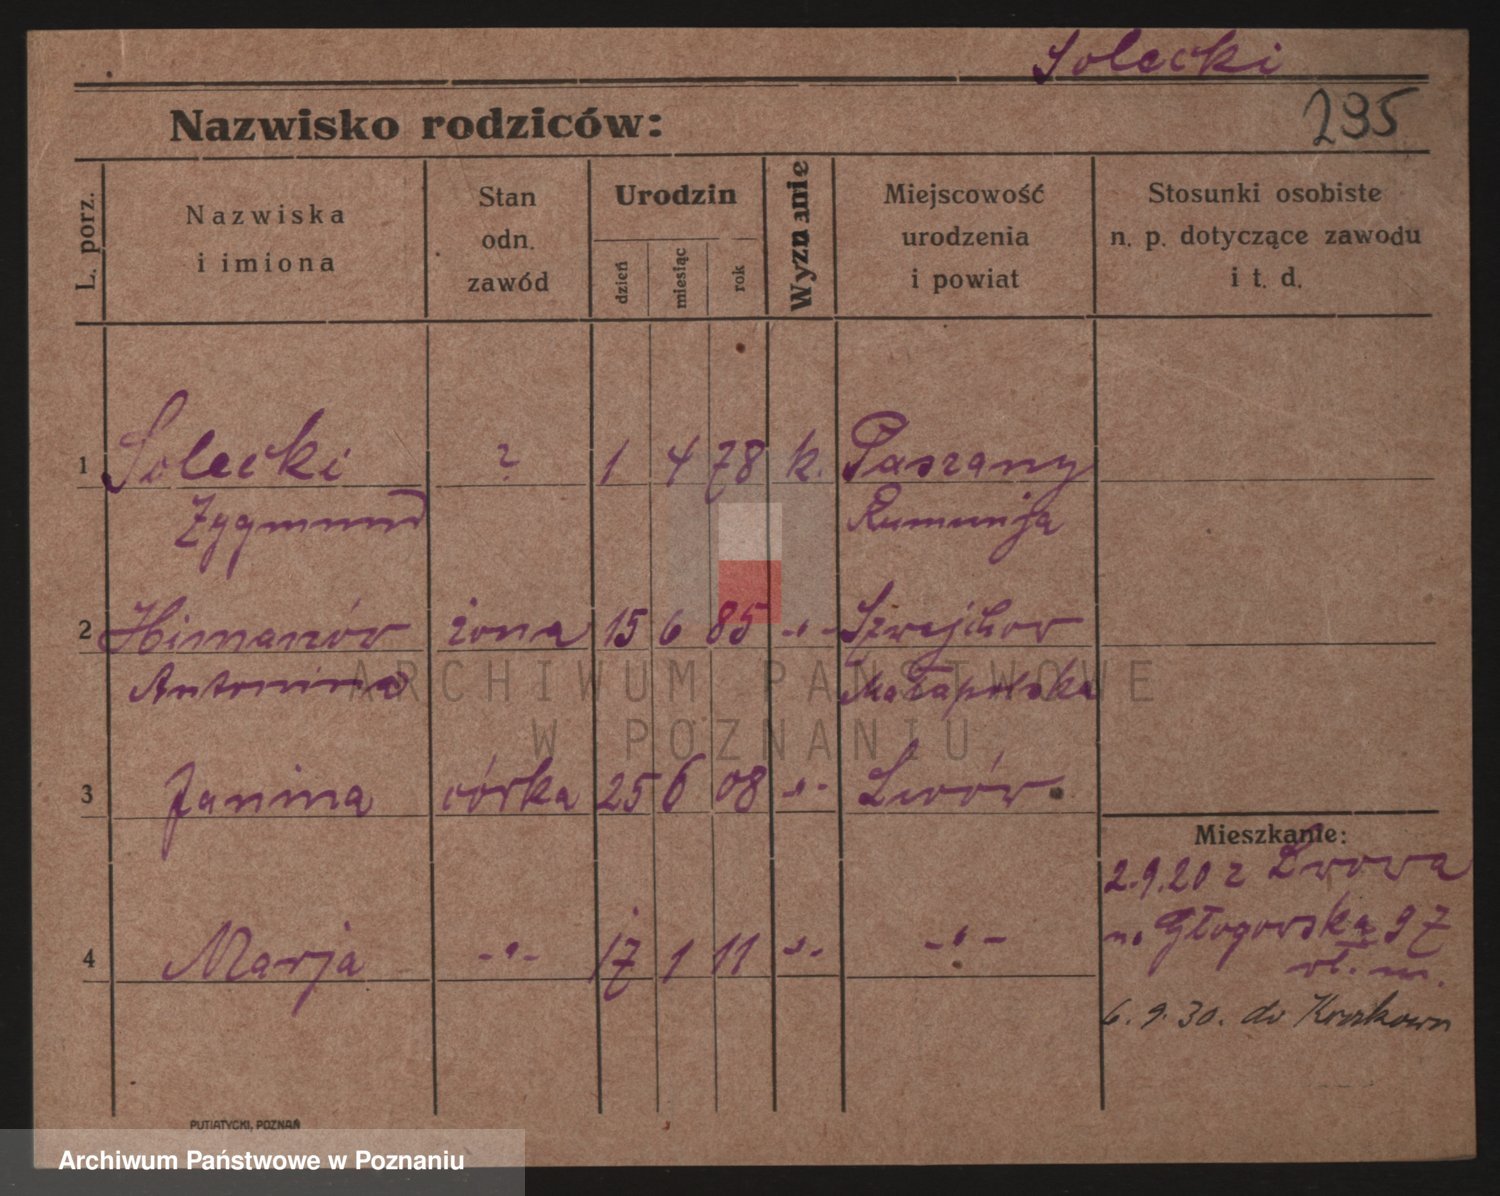 Solecki
295
Nazwisko rodziców:
L. porz.
Nazwiska
i imiona
Stan
odn.
zawód
Urodzin
dzień
miesiąc
rok
Wyznanie
Miejscowość
urodzenia
i powiat
Stosunki osobiste
n. p. dotyczące zawodu
i t. d.
1 Solecki ? 1 4 78 k. Paszany
Zygmund Rumunija
2 żona 15 6 85 -"-
Antonina Małapolska
3 Janina córka 25 6 08 -"- Lwów
Mieszkanie:
2.9.20 z Lwowa
4 Marja -"- 17 1 11 -"- -"-
n. Głogowska 97
wł. m.
6. 9. 30. do Krakowa
PUTIATYCKI, POZNAŃ
ARCHIWUM PAŃSTWOWE
W POZNANIU
Archiwum Państwowe w Poznaniu